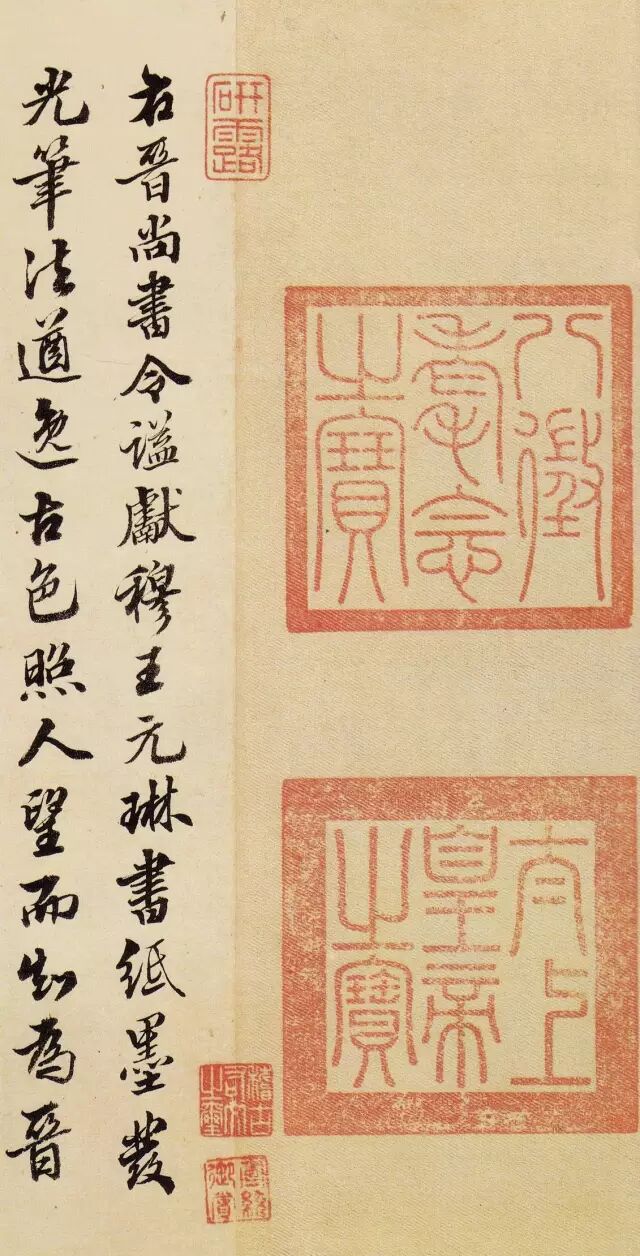 八徵
耄念
之寶
太上
皇帝
之寶
研露
稽古
右文
之璽
右晉尚書令謚獻穆王元琳書紙墨發
光筆法遒逸古色照人望而知為晉